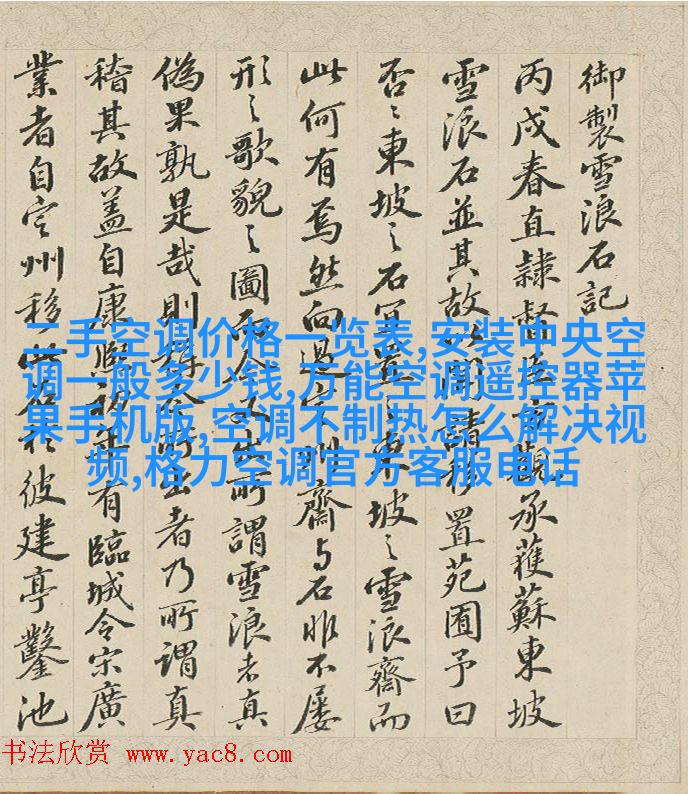 御製雪浪石記
丙戌春直隸督臣方觀承獲蘇東坡
雪浪石並其故以圖請移置苑囿予曰
否〻東坡〻石宜置〻東坡〻雪浪齋而
此何有焉然向過定州齋与石非不屢
形〻歌貌〻圖而今又出所謂雪浪者真
偽果孰是哉則今所出者乃所謂真
稽其故盖自康熙初年有臨城令宋廣
業者自定州移此石於彼建亭鑿池
二手空调价格一览表,安装中央空
调一般多少钱,万能空调遥控器苹
果手机版,空调不制热怎么解决视
频,格力空调官方客服电话
书法欣赏 www.yac8.com